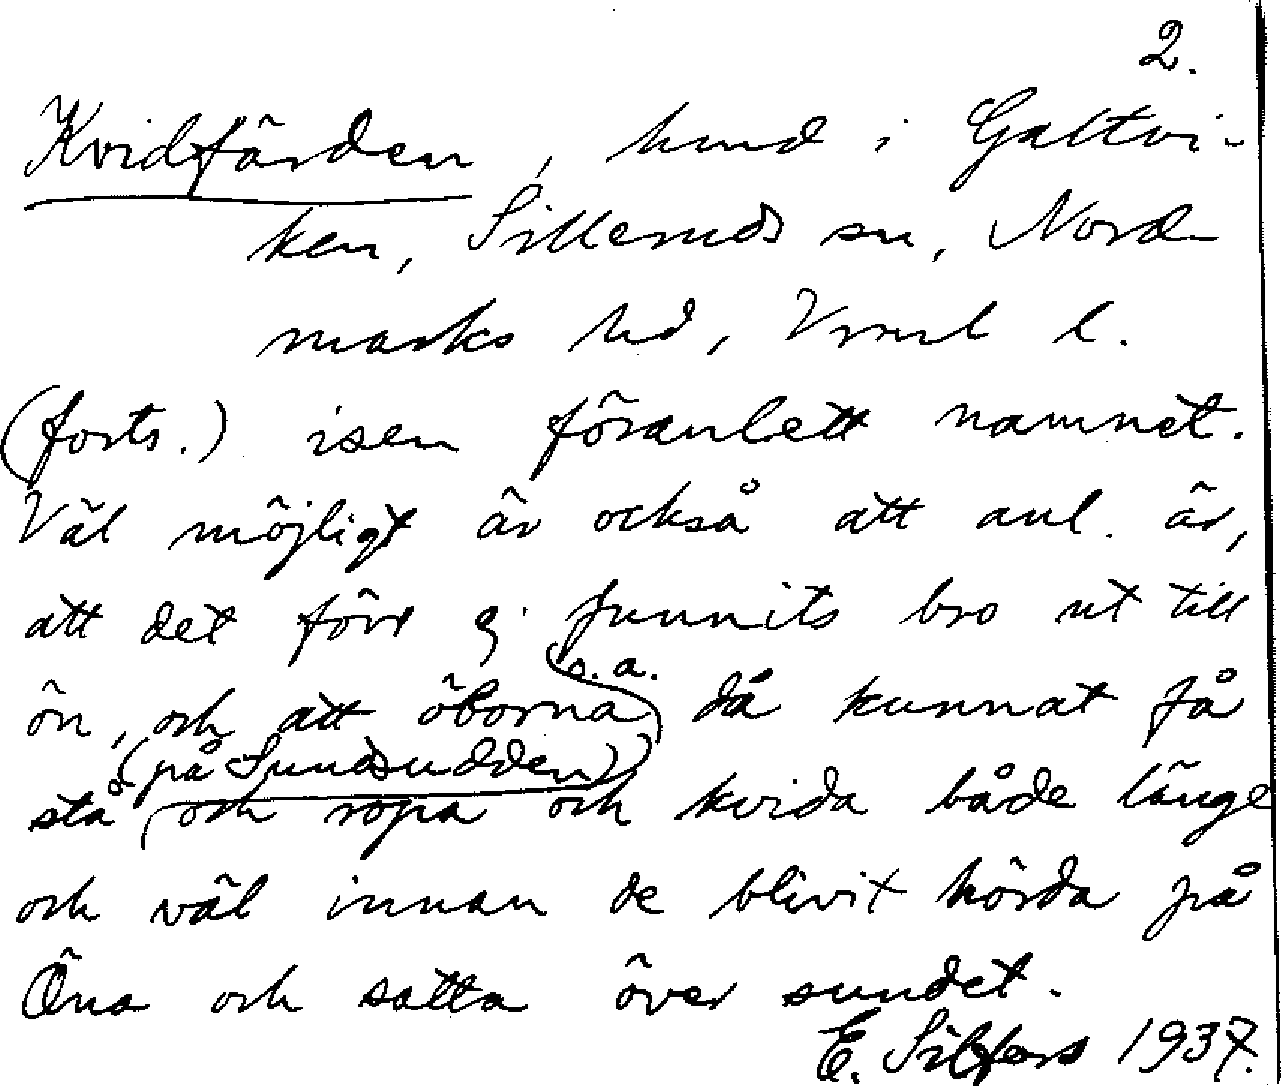 2.
Kvidfärden, sund i Galtvi-
ken, Silleruds sn, Nord-
marks hd, Vrml l.
(forts.) isen föranlett namnet.
Väl möjligt är också att anl. är,
att det förr ej funnits bro ut till
ön, och att öborna (s.a.) då kunnat få
stå (på Sundsudden) och ropa och kvida både länge
och väl innan de blivit hörda på
Öna och satta över sundet.
E. Silfors 1937.